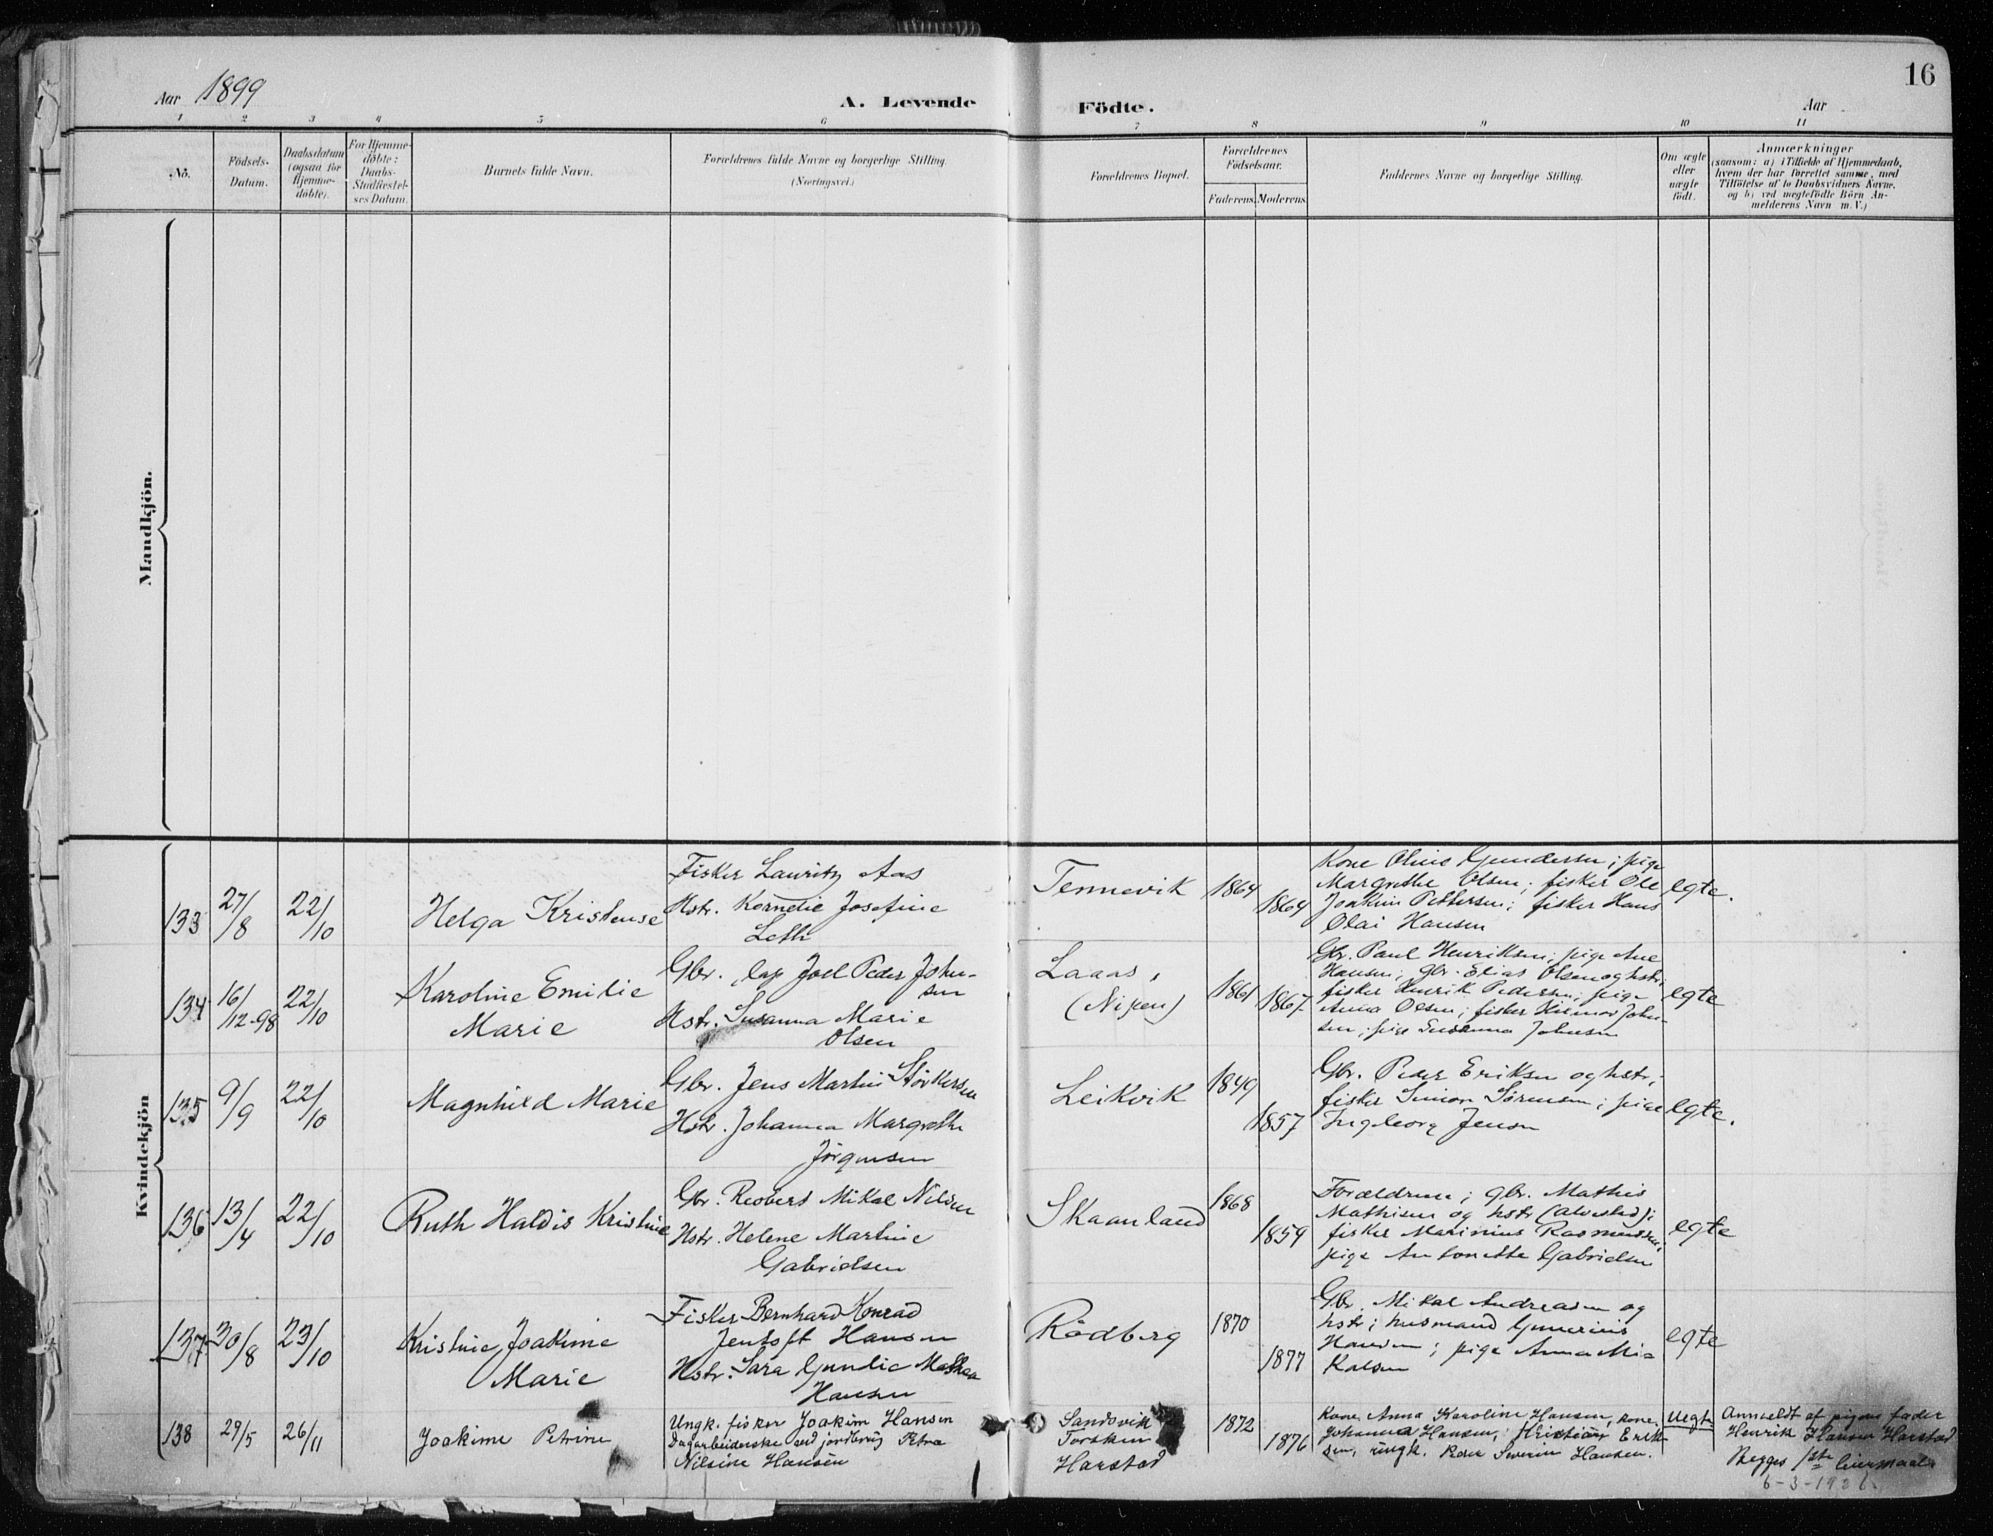 16
Aar 1899
A. Levende Födte.
Aar
1 2 3 4 5 6 7 8 9 10 11
No.
Födsels-
Datum.
Daabsdatum
(ogsaa for
Hjemme-
døbte).
For Hjemme-
døbte:
Daabs-
Stadfæstel-
ses Datum.
Barnets fulde Navn.
Forældrenes fulde Navne og borgerlige Stilling.
(Næringsvei.)
Forældrenes Bopæl.
Forældrenes
Födselsaar.
Faderens. Moderens.
Faddernes Navne og borgerlige Stilling.
Om ægte
eller
uægte
födt.
Anmærkninger
(saasom: a) i Tilfælde af Hjemmedaab,
hvem der har forrettet samme, med
Tilföielse af to Daabsvidners Navne,
og b) ved uægtefödte Börn An-
melderens Navn m. V.)
Mandkjön.
Kvindekjön
133 27/8 22/10 Helga Kristense
Fisker Lauritz Aas
Hstr. Kornelie Josefine
Leth
Tennevik 1864 1864
Kone Oline Gundersen; pige
Margrethe Olsen; fisker Ole
Joakim Pettersen; fisker Hans
Olai Hansen
egte.
134 16/12-98 22/10 Karoline Emilie
Marie
Gbr. lap Joel Peder John-
sen
Hstr. Susanna Marie
Olsen
Laaas,
(Nipen)
1861 1867
Gbr. Paul Henriksen; pige Ane
Hansen; gbr. Elias Olsen og hstr.;
fisker Henrik Pedersen; pige
Anna Olsen; fisker Hilmar John-
sen; pige Susanna Johnsen
egte
135 9/9 22/10 Magnhild Marie
Gbr. Jens Martin Størkersen
Hstr. Johanna Margrethe
Jörgensen
Leikvik 1849 1857
Gbr. Peder Eriksen og hstr.;
fisker Simon Sörensen; pige
Ingeborg Jensen
egte.
136 13/4 22/10 Ruth Haldis Kristine
Gbr. Robert Mikal Nilsen
Hstr. Helene Martine
Gabrielsen
Skaanland 1868 1859
Forældrene; gbr. Mathis
Mathisen og hstr (Alvestad);
fisker Marinius Rasmussen;
pige Antonette Gabrielsen
egte
137 30/8 23/10 Kristine Joakime
Marie
Fisker Bernhard Konrad
Jentoft Hansen
Hstr. Sara Gundie Mathea
Hansen
Rödberg 1870 1877
Gbr. Mikal Andreasen og
hstr; husmand Gunerius
Hansen; pige Anna Mi-
kalsen
egte
138 29/5 26/11 Joakime Petrine
Ungk. fisker Joakim Hansen
Dagarbeiderske ved jordbrug Petra
Nilsine Hansen
Sandsvik
Torsken
Harstad
1872 1876
Kone Anna Karoline Hansen, kone
Johanna Hansen, Kristian Erik-
sen, ungk. Peder Severin Hansen.
Uegte
Anmeldt af pigens fader
Henrik Hansen Harstad
Begges 1ste leiermaal
6-3-1926.